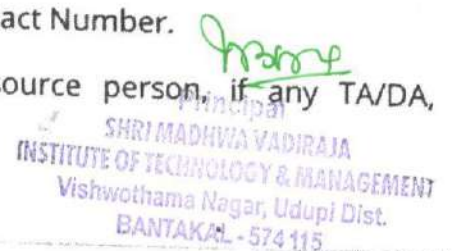 act Number.
ource person, if any TA/DA,
Principal
SHRI MADHWA VADIRAJA
INSTITUTE OF TECHNOLOGY & MANAGEMENT
Vishwothama Nagar, Udupi Dist.
BANTAKAL - 574 115